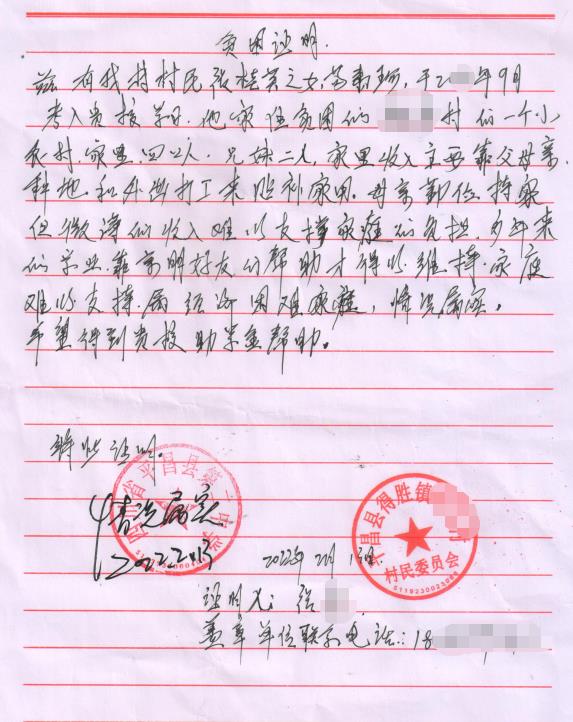 贫困证明.
兹有我村村民张桂英之女,于2年9月
考入贵校学习.他家住贫困的村的一个小
农村.家里四口人.兄妹二人,家里收入主要靠父母亲
种地.和外出打工来贴补家用.母亲勤俭持家
但微薄的收入难以支撑家庭的负担.多年来
的学业.靠亲朋好友们帮助才得以维持.家庭
难以支持.属经济困难家庭,情况属实,
希望得到贵校助学金帮助。
特此证明.
情况属实
2022.2.15
四川省平昌县第二中学
51192300
2022年2月15日
平昌县得胜镇村
村民委员会
5119230023084
证明人:张
盖章单位联系电话:18